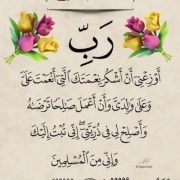 رَبِّ
أَوْزِعْنِيٓ أَنْ أَشْكُرَ نِعْمَتَكَ ٱلَّتِيٓ أَنْعَمْتَ عَلَيَّ
وَعَلَىٰ وَٰلِدَيَّ وَأَنْ أَعْمَلَ صَٰلِحًا تَرْضَىٰهُ
وَأَصْلِحْ لِي فِي ذُرِّيَّتِيٓ إِنِّي تُبْتُ إِلَيْكَ
وَإِنِّي مِنَ ٱلْمُسْلِمِينَ